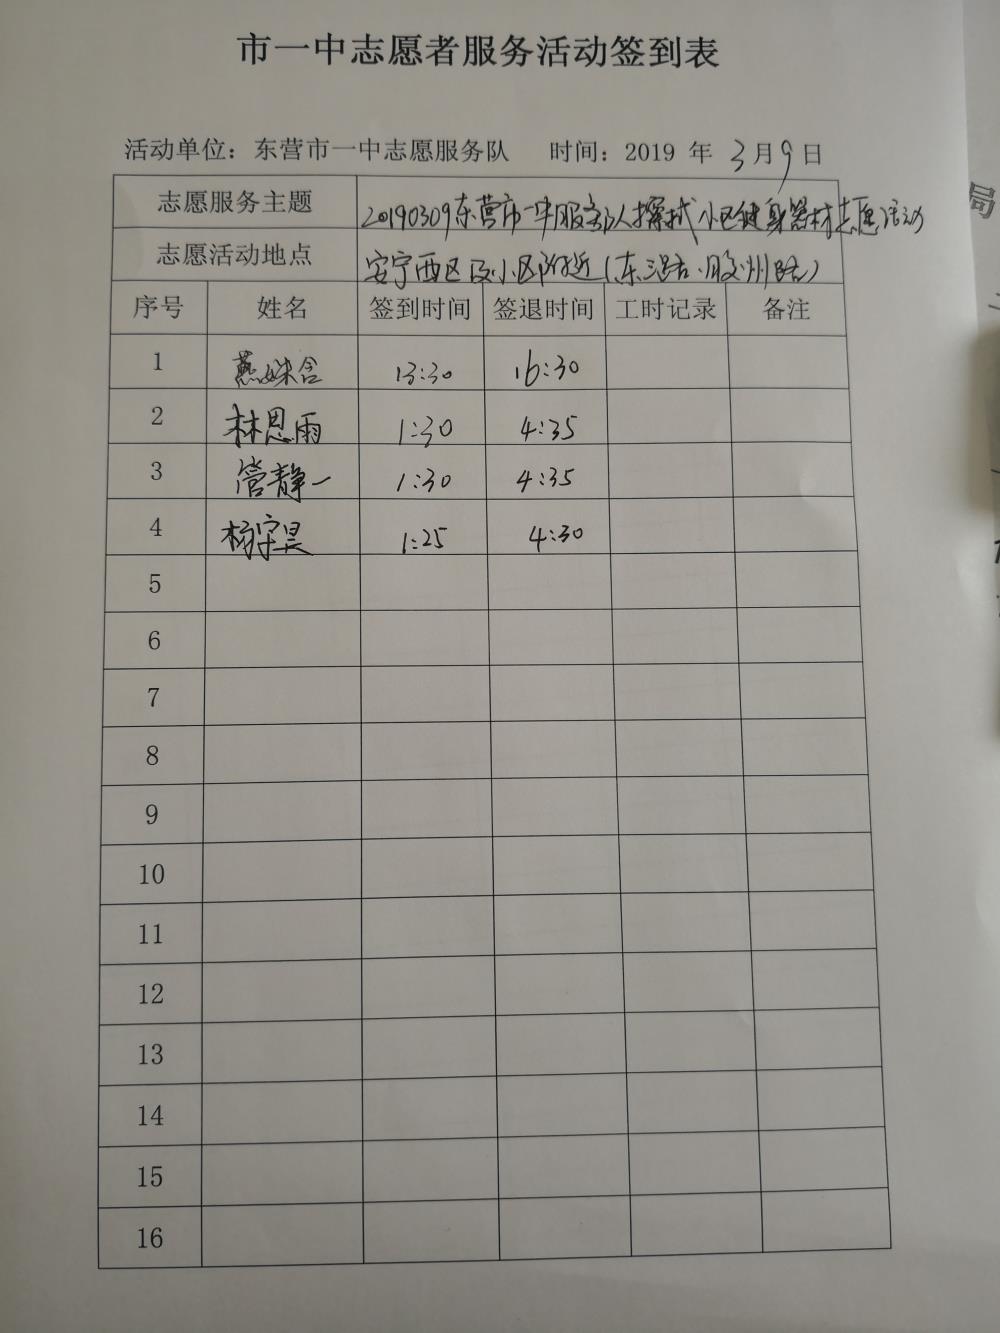 市一中志愿者服务活动签到表
活动单位：东营市一中志愿服务队 时间：2019 年 3月9日
志愿服务主题 20190309东营市一中服务队擦拭小区健身器材志愿活动
志愿活动地点 安宁西区及小区附近(东三路、胶州路)
序号 姓名 签到时间 签退时间 工时记录 备注
1 燕姝含 13:30 16:30
2 林思雨 1:30 4:35
3 管静一 1:30 4:35
4 杨守昊 1:25 4:30
5
6
7
8
9
10
11
12
13
14
15
16
局